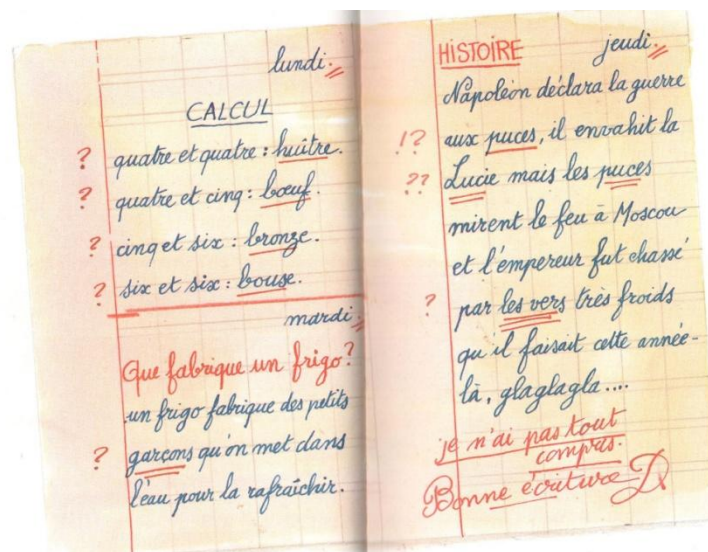 lundi.
CALCUL
? quatre et quatre : huître.
? quatre et cinq : bœuf.
? cinq et six : bronze.
? six et six : bouse.
mardi.
Que fabrique un frigo ?
un frigo fabrique des petits
? garçons qu'on met dans
l'eau pour la rafraîchir.
HISTOIRE jeudi.
Napoléon déclara la guerre
!? aux puces, il envahit la
?? Lucie mais les puces
mirent le feu à Moscou
et l'empereur fut chassé
? par les vers très froids
qu'il faisait cette année-
là, glaglagla....
je n'ai pas tout
compris.
Bonne écriture D